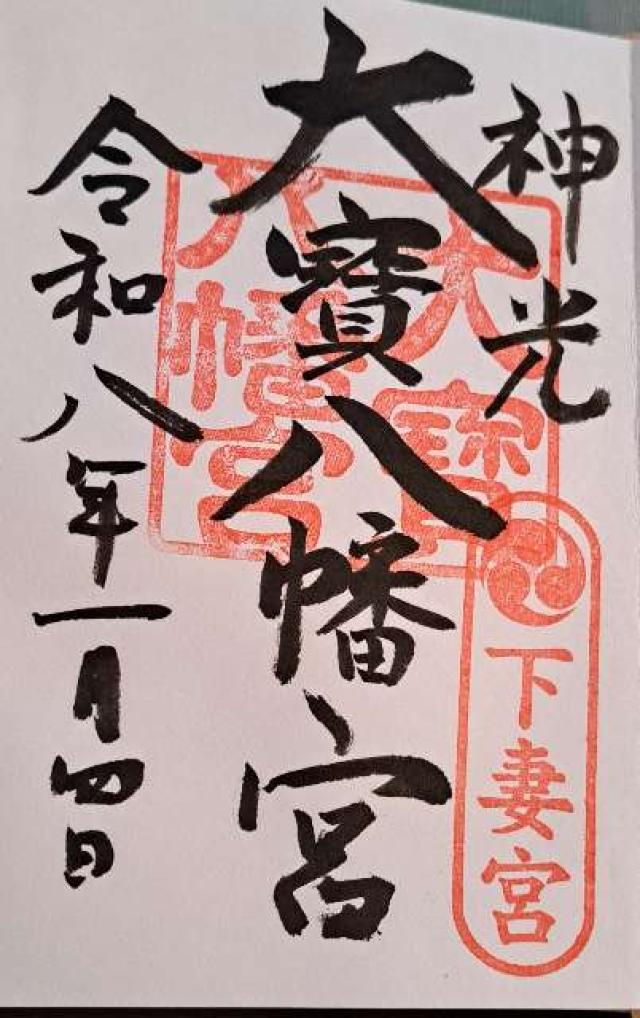 神光
大寶八幡宮
令和八年一月四日
大寶
八幡宮
下妻宮